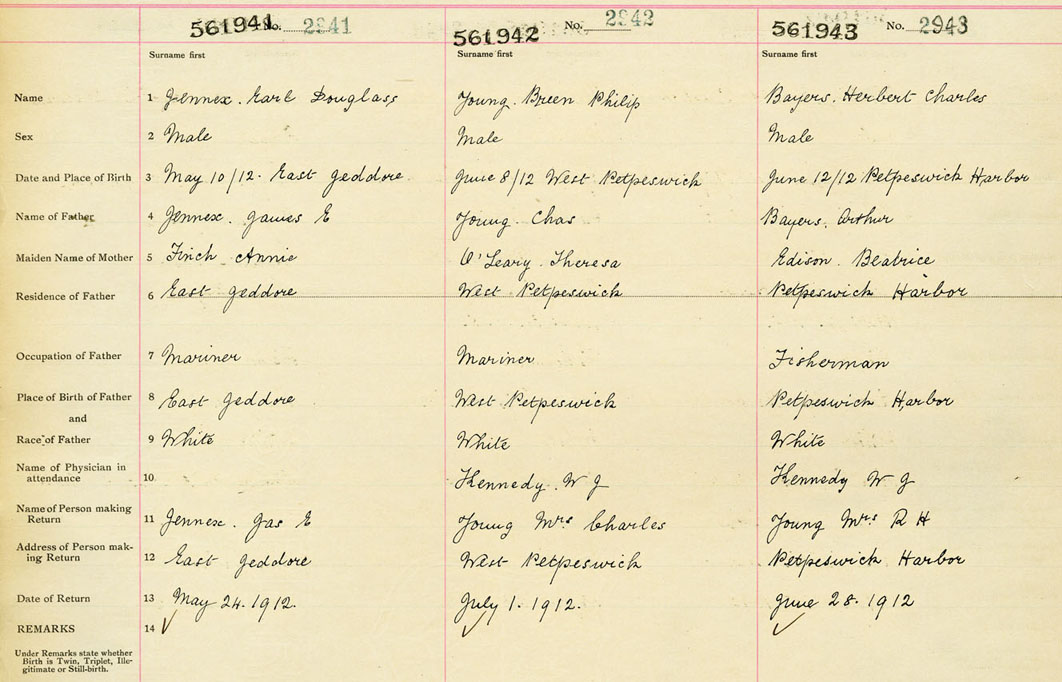 561941 No. 2941 561942 No. 2942 561943 No. 2943
Surname first Surname first Surname first
Name 1 Jennex. Earl Douglass Young. Breen Philip Bayers. Herbert Charles
Sex 2 Male Male Male
Date and Place of Birth 3 May 10/12. East Jeddore June 8/12 West Petpeswick June 12/12 Petpeswick Harbor
Name of Father 4 Jennex. James E Young. Chas Bayers. Arthur
Maiden Name of Mother 5 Finch Annie O'Leary. Theresa Edison. Beatrice
Residence of Father 6 East Jeddore West Petpeswick Petpeswick Harbor
Occupation of Father 7 Mariner Mariner Fisherman
Place of Birth of Father 8 East Jeddore West Petpeswick Petpeswick Harbor
and
Race of Father 9 White White White
Name of Physician in
attendance 10 Kennedy. W J Kennedy W J
Name of Person making
Return 11 Jennex. Jas E Young Mrs Charles Young Mrs R H
Address of Person mak-
ing Return 12 East Jeddore West Petpeswick Petpeswick Harbor
Date of Return 13 May 24. 1912. July 1. 1912. June 28. 1912
REMARKS 14 ✓ ✓ ✓
Under Remarks state whether
Birth is Twin, Triplet, Ille-
gitimate or Still-birth.